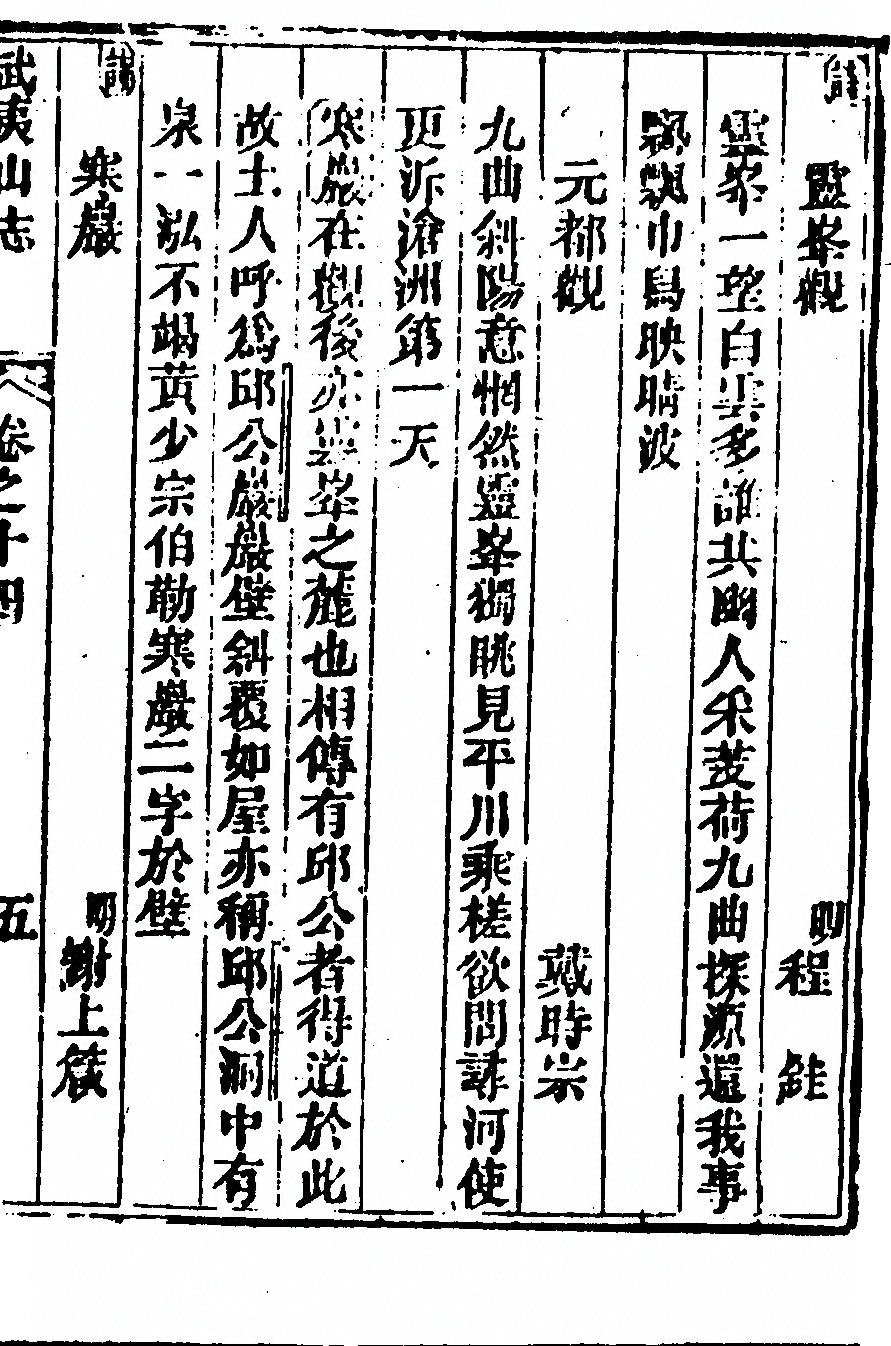 詩 靈峯觀 明 程銈
靈峯一望白雲多誰共幽人采芰荷九曲探源還我事
飄飄巾舄映晴波
元都觀 戴時宗
九曲斜陽意惘然靈峯獨眺見平川乘槎欲問詠河使
更泝滄洲第一天
寒巖在觀後亦靈峯之麓也相傳有邱公者得道於此
故土人呼爲邱公巖巖壁斜覆如屋亦稱邱公洞中有
泉一泓不竭黃少宗伯勒寒巖二字於壁
詩 寒巖 明 謝上箴
武夷山志 卷之十四 五